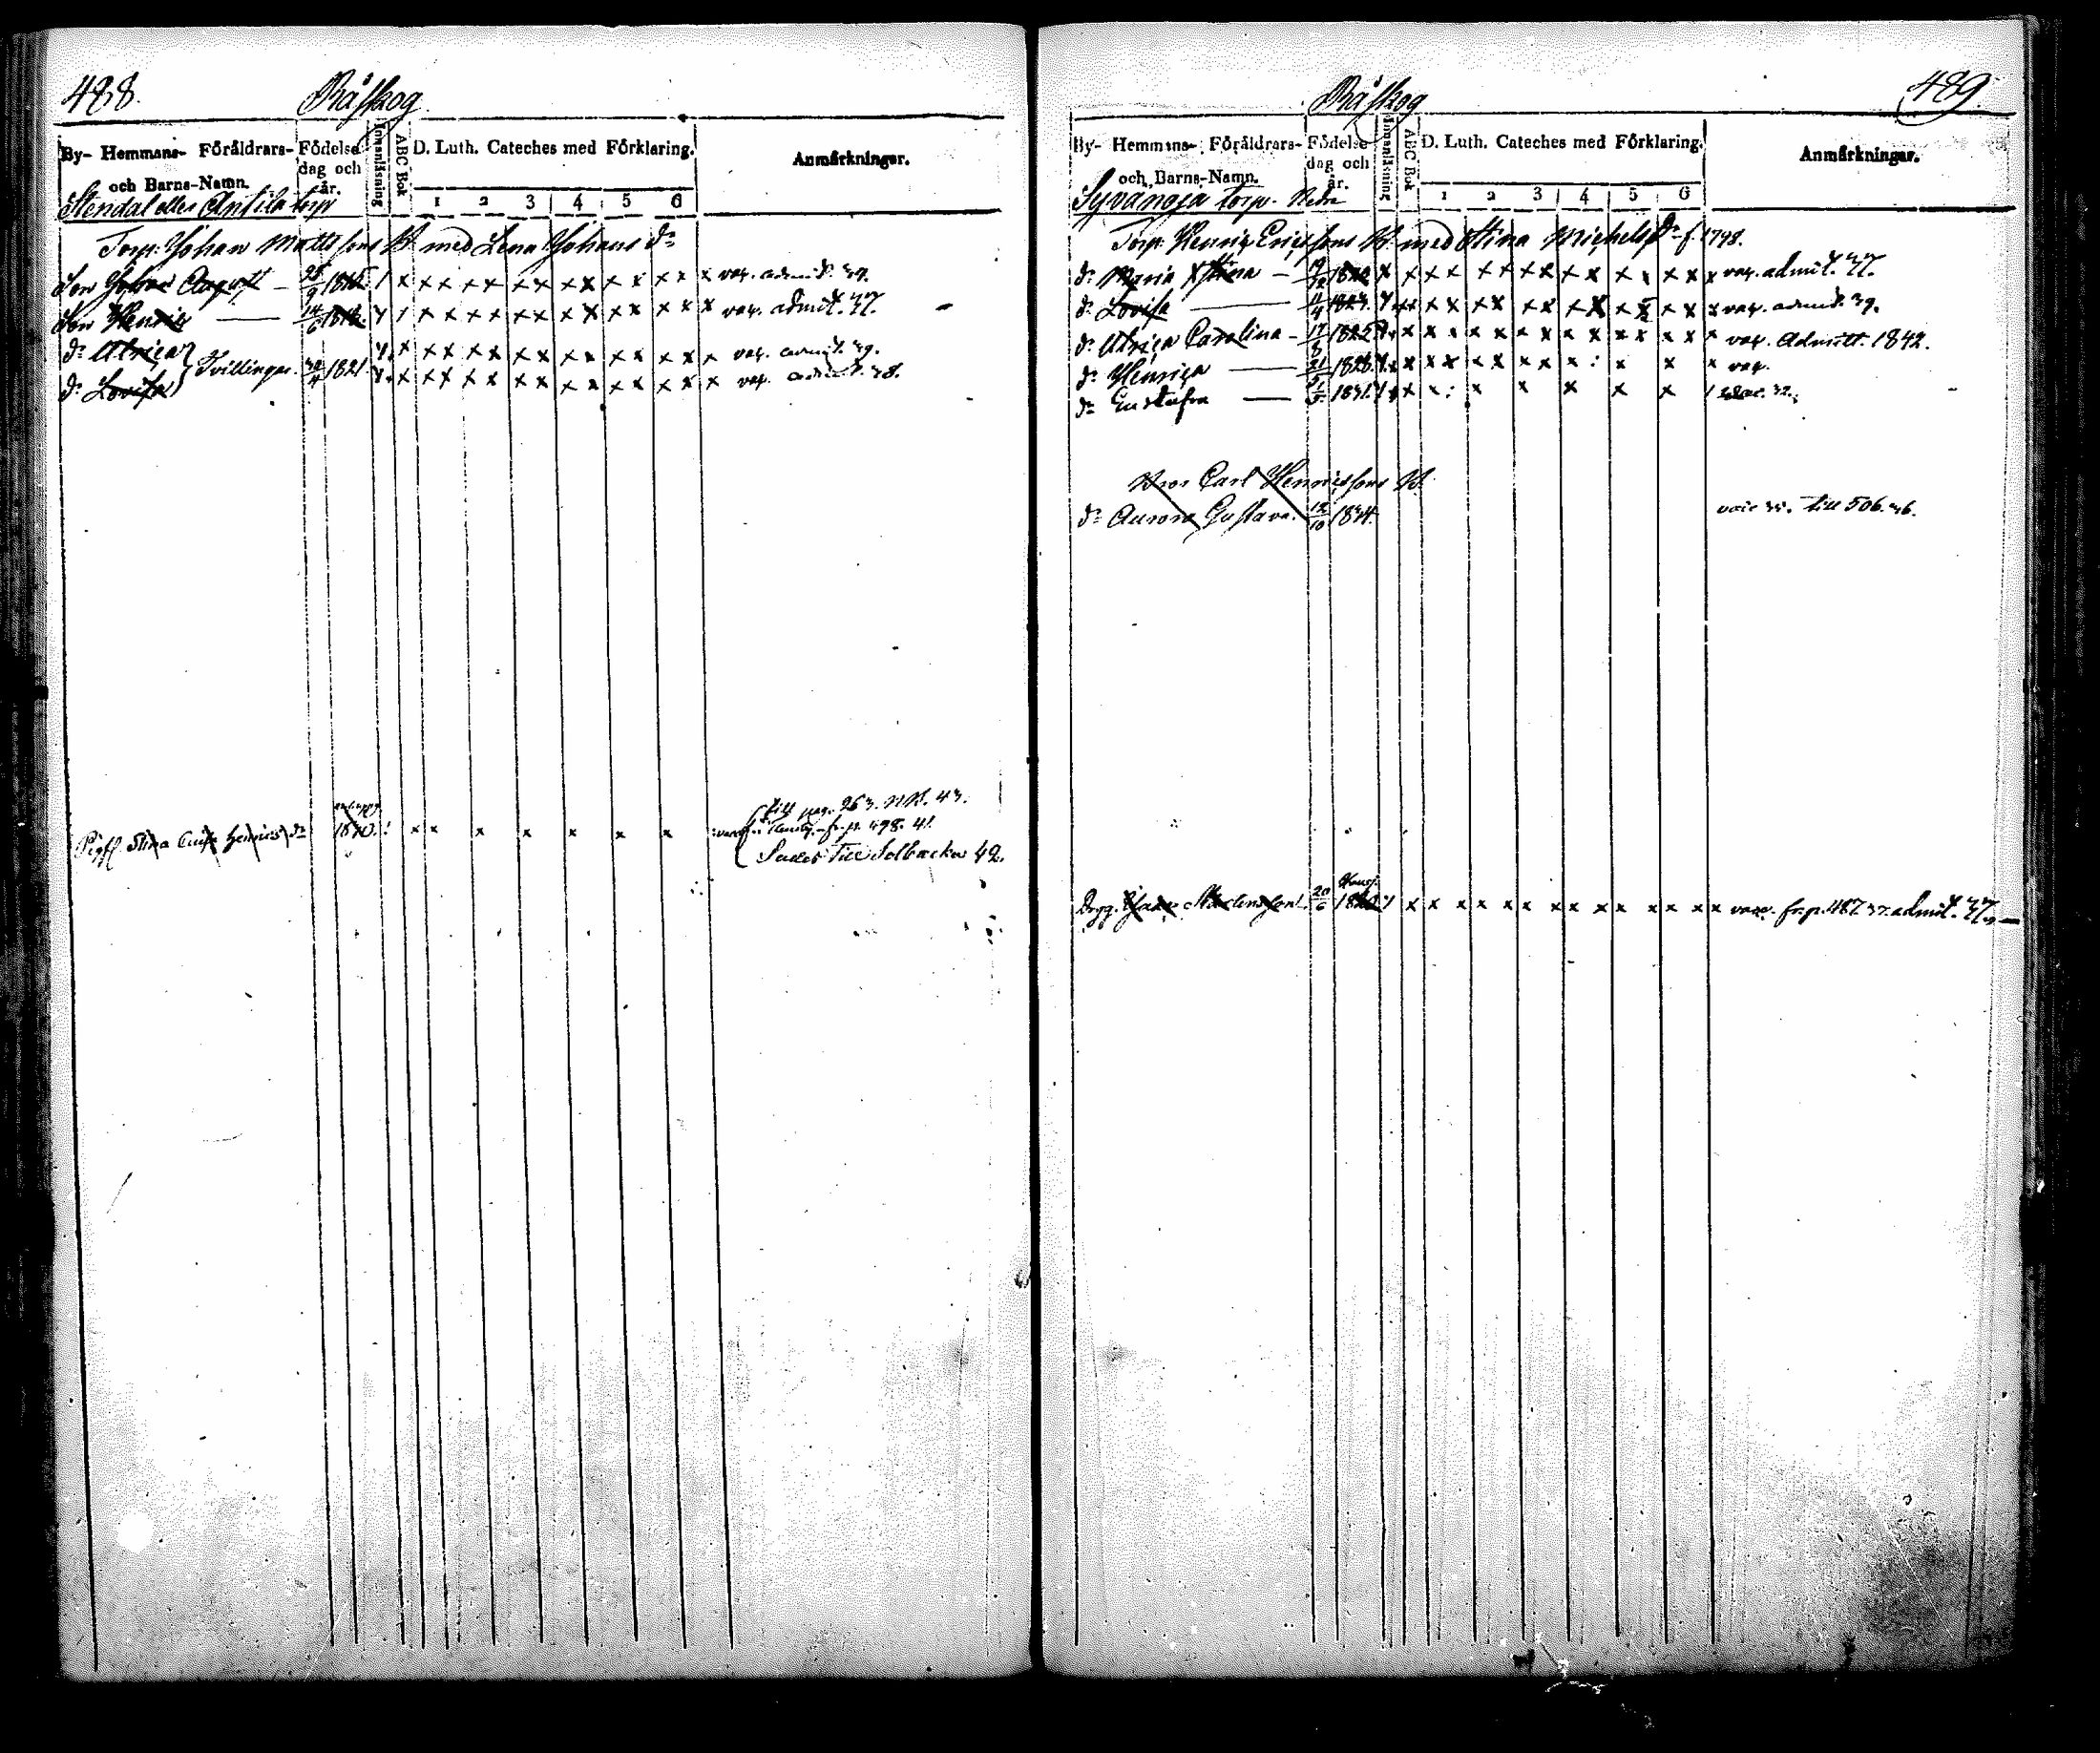 488.
Råskog
By- Hemmans- Föräldrars- och Barns-Namn. Födelse dag och år. Innanläsning ABC Bok D. Luth. Cateches med Förklaring. Anmärkningar.
1 2 3 4 5 6
Stendal eller Antila torp
Torp. Johan Mattssons B. med Lena Johans dr
Son Johan August — 25/9 1815 1 x x x x x x x x x x x x x x vac. admit. 39.
Son Henric — 14/6 1818 x x x x x x x x x x x x x vac. admit. 37.
dr Ulrica } Tvillingar. 30/4 1821. x x x x x x x x x x x x x x vac. admit. 39.
dr Lovisa x x x x x x x x x x x x x x vac. admit. 38.
Stina Henrics dr 1820. x x x x x x x
till pag. 263. 43.
fr. p. 498. 41.
till Solbacka 42.
489.
Råskog
By- Hemmans- Föräldrars- och Barns-Namn. Födelse dag och år. Innanläsning ABC Bok D. Luth. Cateches med Förklaring. Anmärkningar.
1 2 3 4 5 6
Syvänoja torp. Nedre
Torp. Henric Ericssons B. med Stina Michels dr f. 1798.
dr Maria Stina — 1822 x x x x x x x x x x x x x x x vac. admit. 37.
dr Lovisa — 11/4 1823. x x x x x x x x x x x x x vac. admit. 39.
dr Ulrica Carolina — 17/3 1825 x x x x x x x x x x x x x x vac. Admitt. 1842.
dr Henrica — 1828. x x x x x x x x : x x x vac.
dr Gustafva — 1831. x x : x x x x x vac. 32.
Carl Henricssons B.
dr Aurora Gustava. 12/10 1834. vac. 35. till 506. 36.
20/6 1820 x x x x x x x x x x x x x x vac. fr. p. 487 37. admit. 37. —